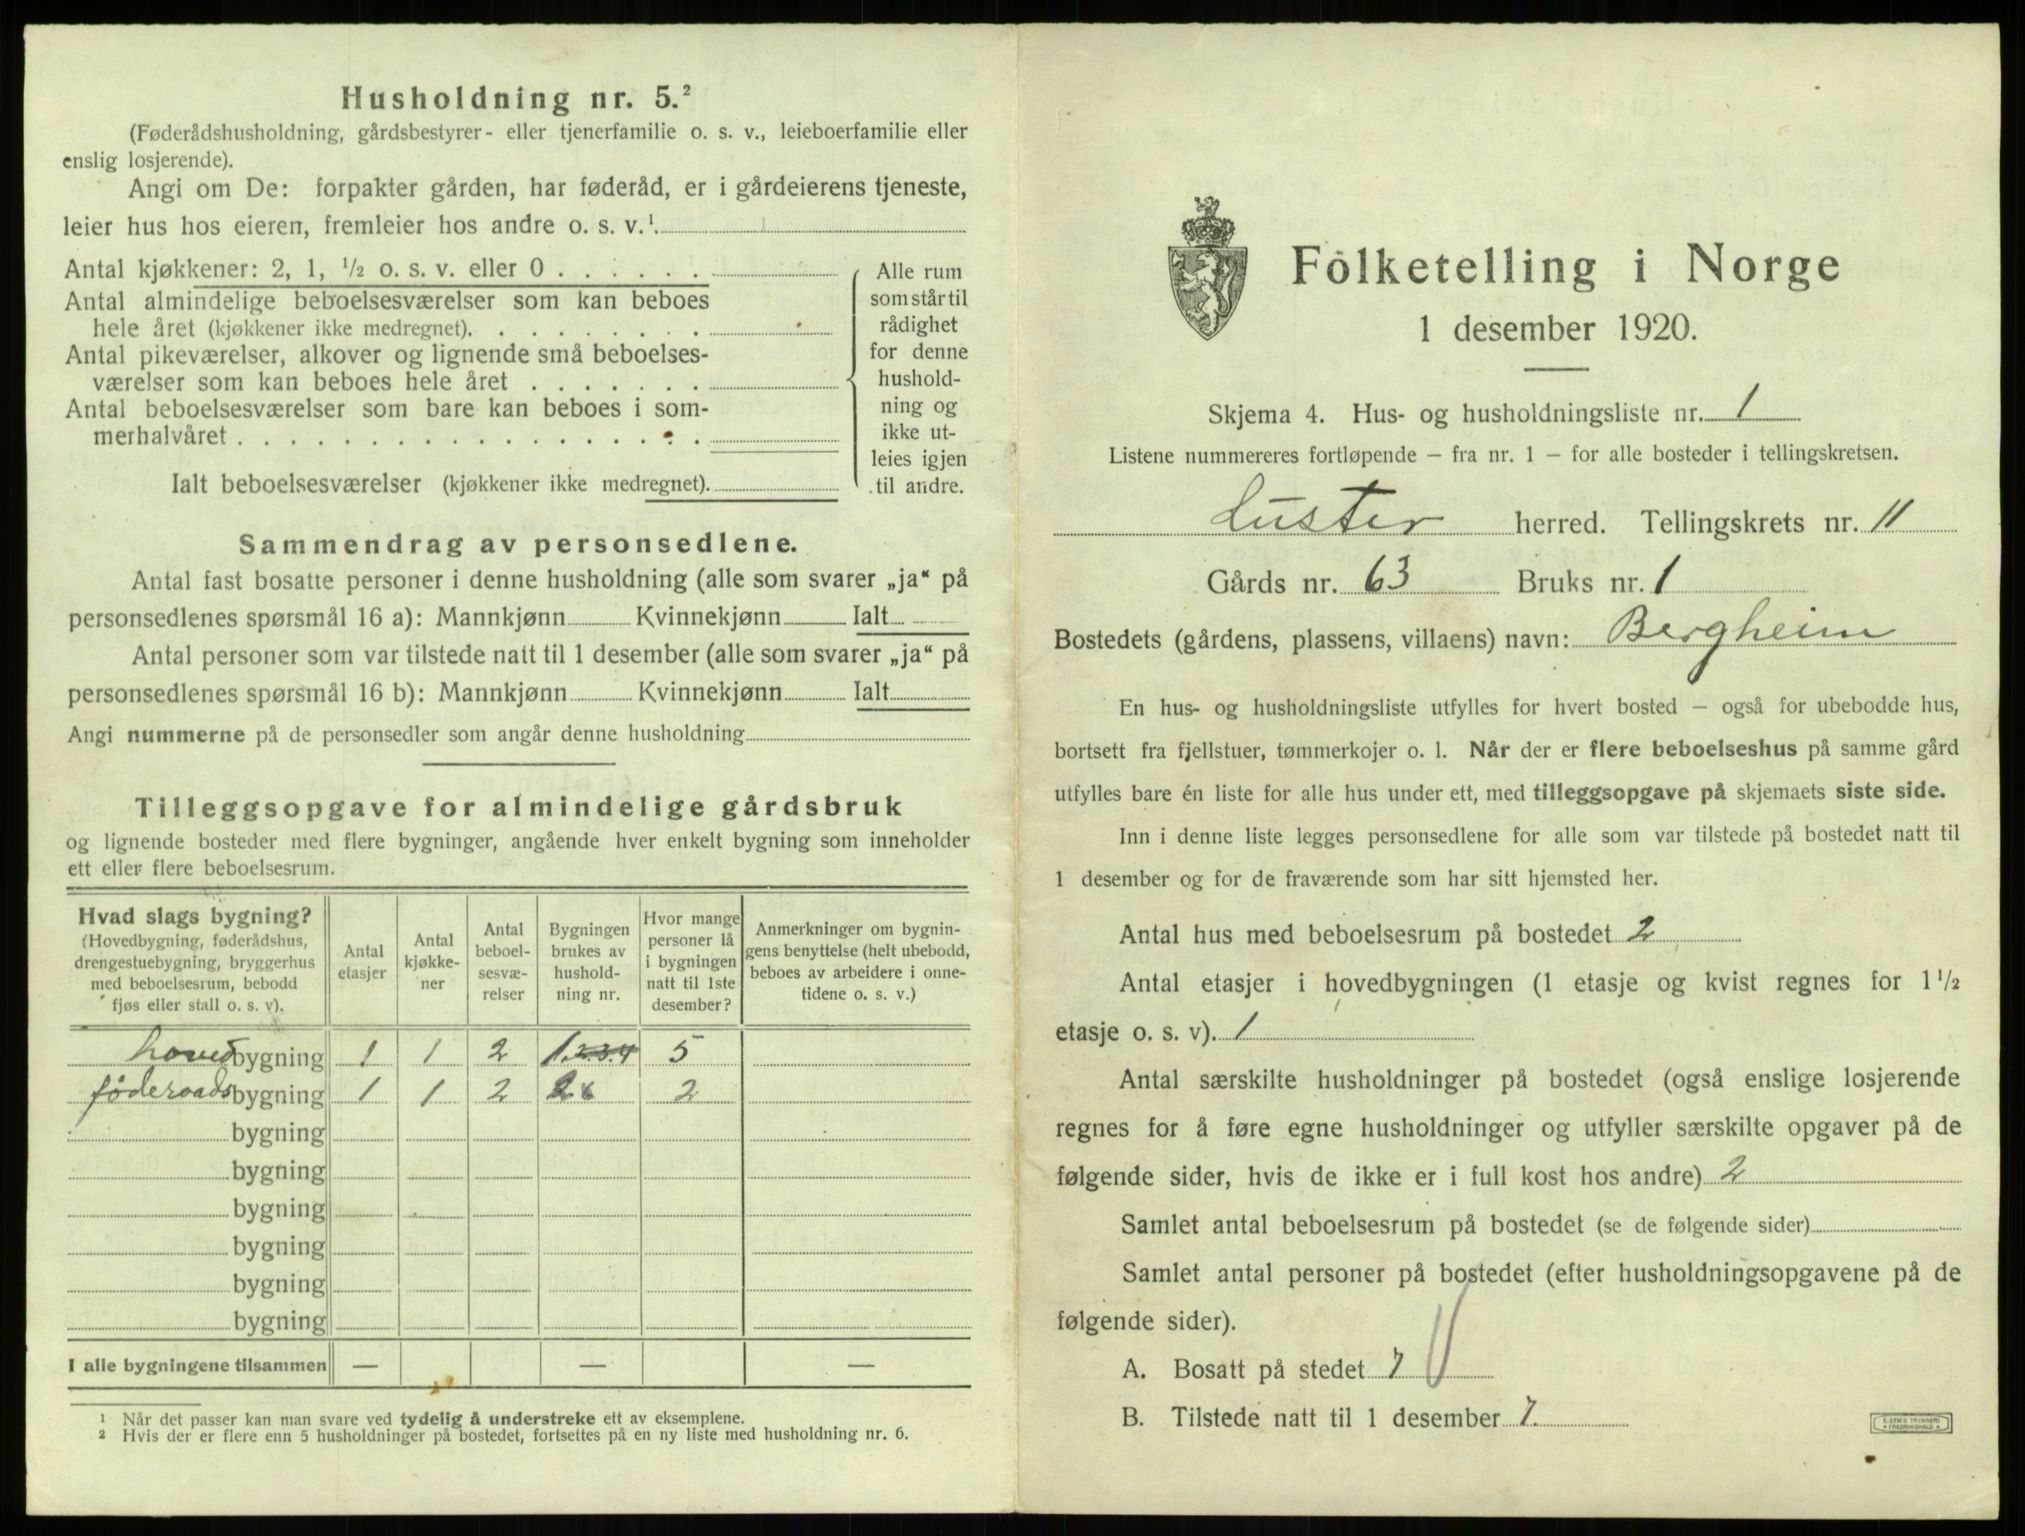 Husholdning nr. 5.²
(Føderådshusholdning, gårdsbestyrer- eller tjenerfamilie o. s. v., leieboerfamilie eller
enslig losjerende).
Angi om De: forpakter gården, har føderåd, er i gårdeierens tjeneste,
leier hus hos eieren, fremleier hos andre o. s. v.¹
Antal kjøkkener: 2, 1, ½ o. s. v. eller 0 . . . . . .
Antal almindelige beboelsesværelser som kan beboes
hele året (kjøkkener ikke medregnet). . . . . . . . .
Antal pikeværelser, alkover og lignende små beboelses-
værelser som kan beboes hele året . . . . . . .
Antal beboelsesværelser som bare kan beboes i som-
merhalvåret . . . . . . . . . . . . . . . . . .
Ialt beboelsesværelser (kjøkkener ikke medregnet).
Alle rum
som står til
rådighet
for denne
hushold-
ning og
ikke ut-
leies igjen
til andre.
Sammendrag av personsedlene.
Antal fast bosatte personer i denne husholdning (alle som svarer „ja“ på
personsedlenes spørsmål 16 a): Mannkjønn Kvinnekjønn Ialt
Antal personer som var tilstede natt til 1 desember (alle som svarer „ja“ på
personsedlenes spørsmål 16 b): Mannkjønn Kvinnekjønn Ialt
Angi nummerne på de personsedler som angår denne husholdning
Tilleggsopgave for almindelige gårdsbruk
og lignende bosteder med flere bygninger, angående hver enkelt bygning som inneholder
ett eller flere beboelsesrum.
Hvad slags bygning?
(Hovedbygning, føderådshus,
drengestuebygning, bryggerhus
med beboelsesrum, bebodd
fjøs eller stall o. s. v).
Antal
etasjer
Antal
kjøkke-
ner
Antal
beboel-
sesvæ-
relser
Bygningen
brukes av
hushold-
ning nr.
Hvor mange
personer lå
i bygningen
natt til 1ste
desember?
Anmerkninger om bygnin-
gens benyttelse (helt ubebodd,
beboes av arbeidere i onne-
tidene o. s. v.)
hovedbygning 1 1 2 1.2.3.4 5
føderaadsbygning 1 1 2 2 2
bygning
bygning
bygning
bygning
bygning
bygning
I alle bygningene tilsammen — — —
¹ Når det passer kan man svare ved tydelig å understreke ett av eksemplene.
² Hvis der er flere enn 5 husholdninger på bostedet, fortsettes på en ny liste med husholdning nr. 6.
Folketelling i Norge
1 desember 1920.
Skjema 4. Hus- og husholdningsliste nr. 1
Listene nummereres fortløpende – fra nr. 1 – for alle bosteder i tellingskretsen.
Luster herred. Tellingskrets nr. 11
Gårds nr. 63 Bruks nr. 1
Bostedets (gårdens, plassens, villaens) navn: Bergheim
En hus- og husholdningsliste utfylles for hvert bosted – også for ubebodde hus,
bortsett fra fjellstuer, tømmerkojer o. l. Når der er flere beboelseshus på samme gård
utfylles bare én liste for alle hus under ett, med tilleggsopgave på skjemaets siste side.
Inn i denne liste legges personsedlene for alle som var tilstede på bostedet natt til
1 desember og for de fraværende som har sitt hjemsted her.
Antal hus med beboelsesrum på bostedet 2
Antal etasjer i hovedbygningen (1 etasje og kvist regnes for 1½
etasje o. s. v). 1
Antal særskilte husholdninger på bostedet (også enslige losjerende
regnes for å føre egne husholdninger og utfyller særskilte opgaver på de
følgende sider, hvis de ikke er i full kost hos andre) 2
Samlet antal beboelsesrum på bostedet (se de følgende sider)
Samlet antal personer på bostedet (efter husholdningsopgavene på de
følgende sider).
A. Bosatt på stedet 7
B. Tilstede natt til 1 desember 7.
E. SEM'S TRYKKERI
FREDRIKSHALD